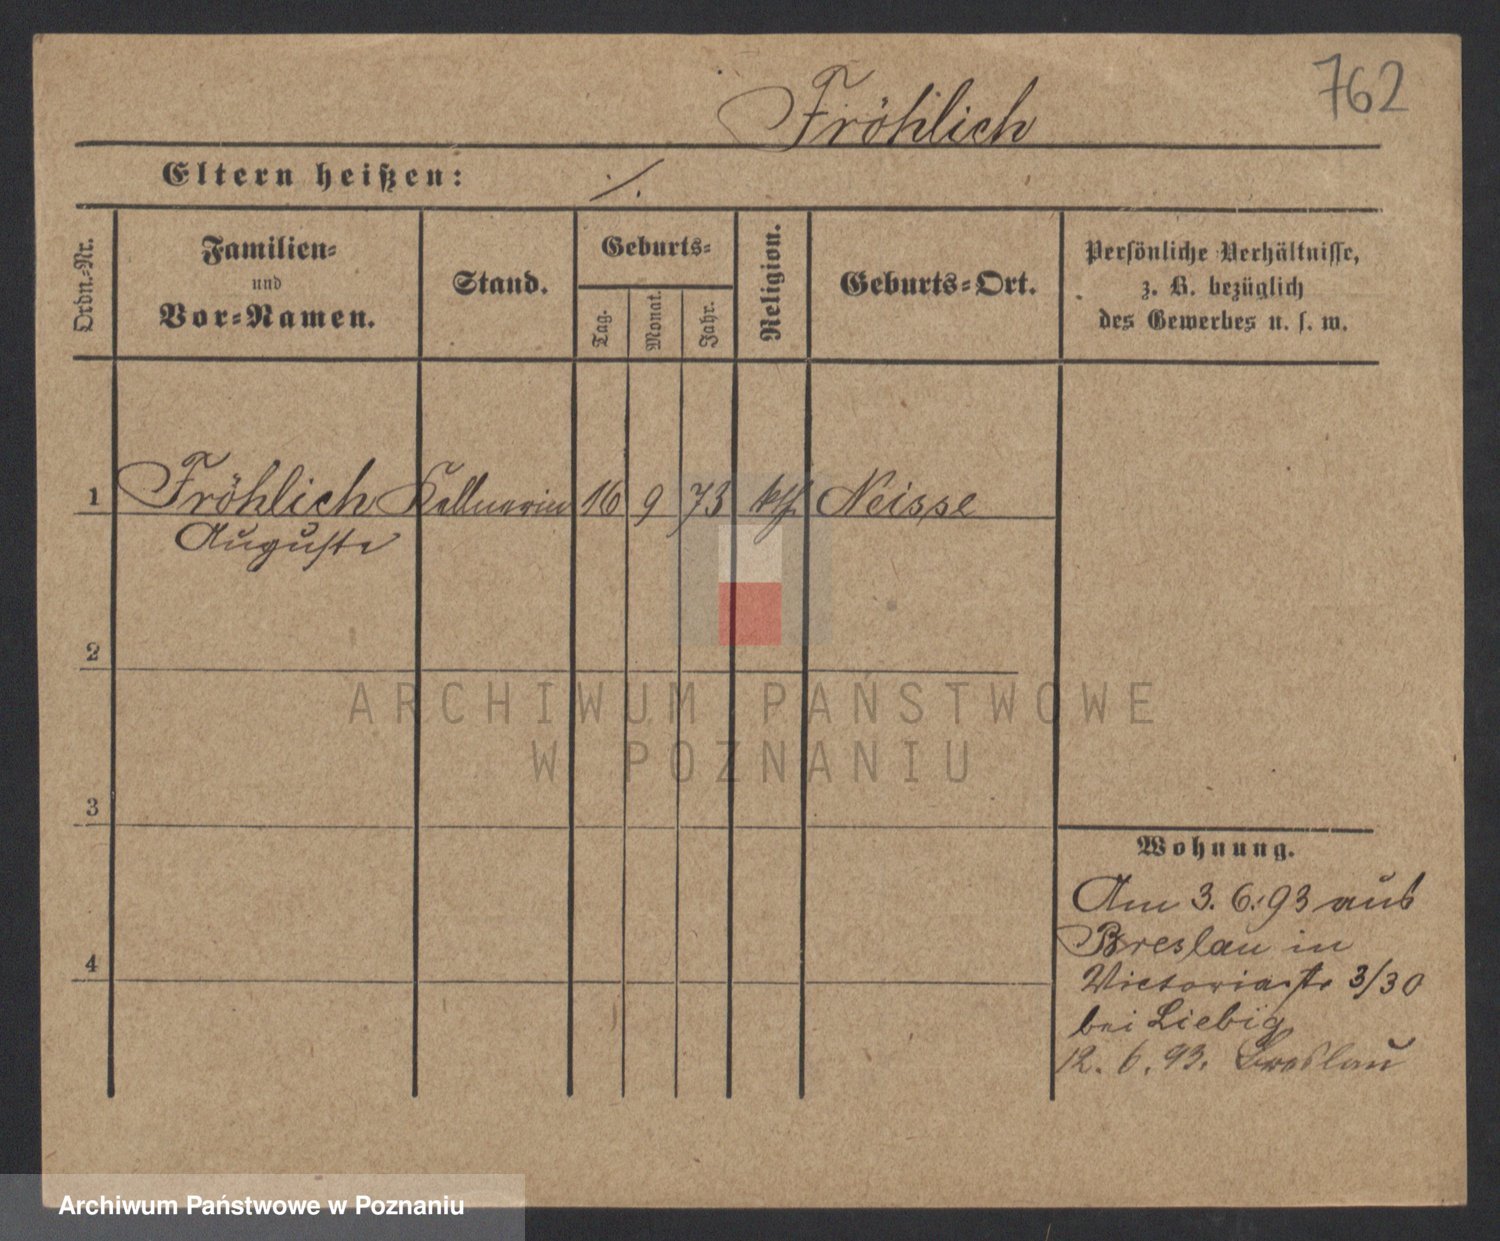 762
Fröhlich
Eltern heißen: ./.
Ordn.-Nr.
Familien-
und
Vor-Namen.
Stand.
Geburts-
Tag.
Monat.
Jahr.
Religion.
Geburts-Ort.
Persönliche Verhältnisse,
z. B. bezüglich
des Gewerbes u. s. w.
1 Fröhlich Kellnerin 16 9 73 kth Neisse
Auguste
2
3
4
Wohnung.
Am 3. 6. 93 aus
Breslau in
Victoriastr 3/30
bei Liebig
12. 6. 93. Breslau
ARCHIWUM PAŃSTWOWE
W POZNANIU
Archiwum Państwowe w Poznaniu